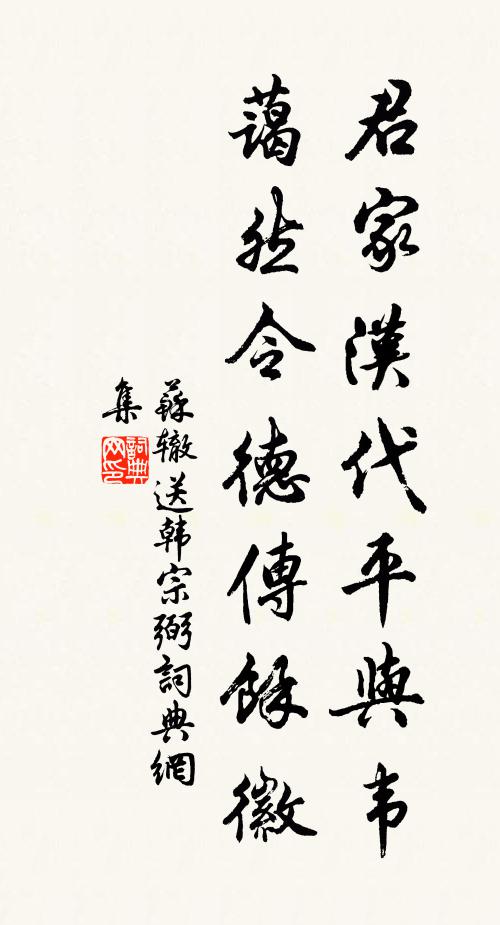 君家漢代平與韦
藹然令德傳餘徽
蘇辙送韩宗弼詞典網
集
詞典
网印